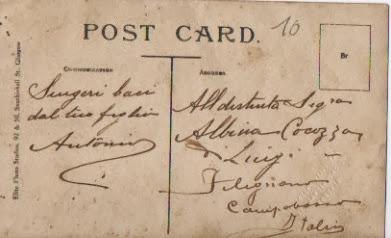 10
POST CARD.
Br
CORRESPONDENCE
ADDRESS
Elite Photo Studios, 92 & 96, Sauchiehall St. Glasgow
Singeri baci
dal tuo figlio
Antonio
All distinta Sigra
Albina Cocozza
di Luigi
Filignano
Campobasso
Italia